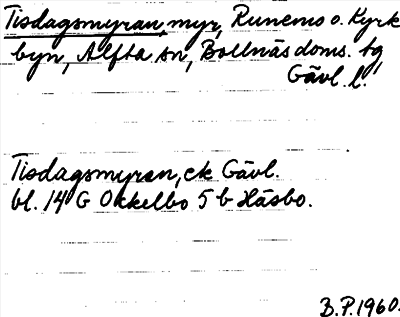 Tisdagsmyran, myr, Runemo o. Kyrk
byn, Alfta sn, Bollnäs doms. tg
Gävl. l.
Tisdagsmyran, ek Gävl.
bl. 14 G Ockelbo 5 b Häsbo.
B.P. 1960.